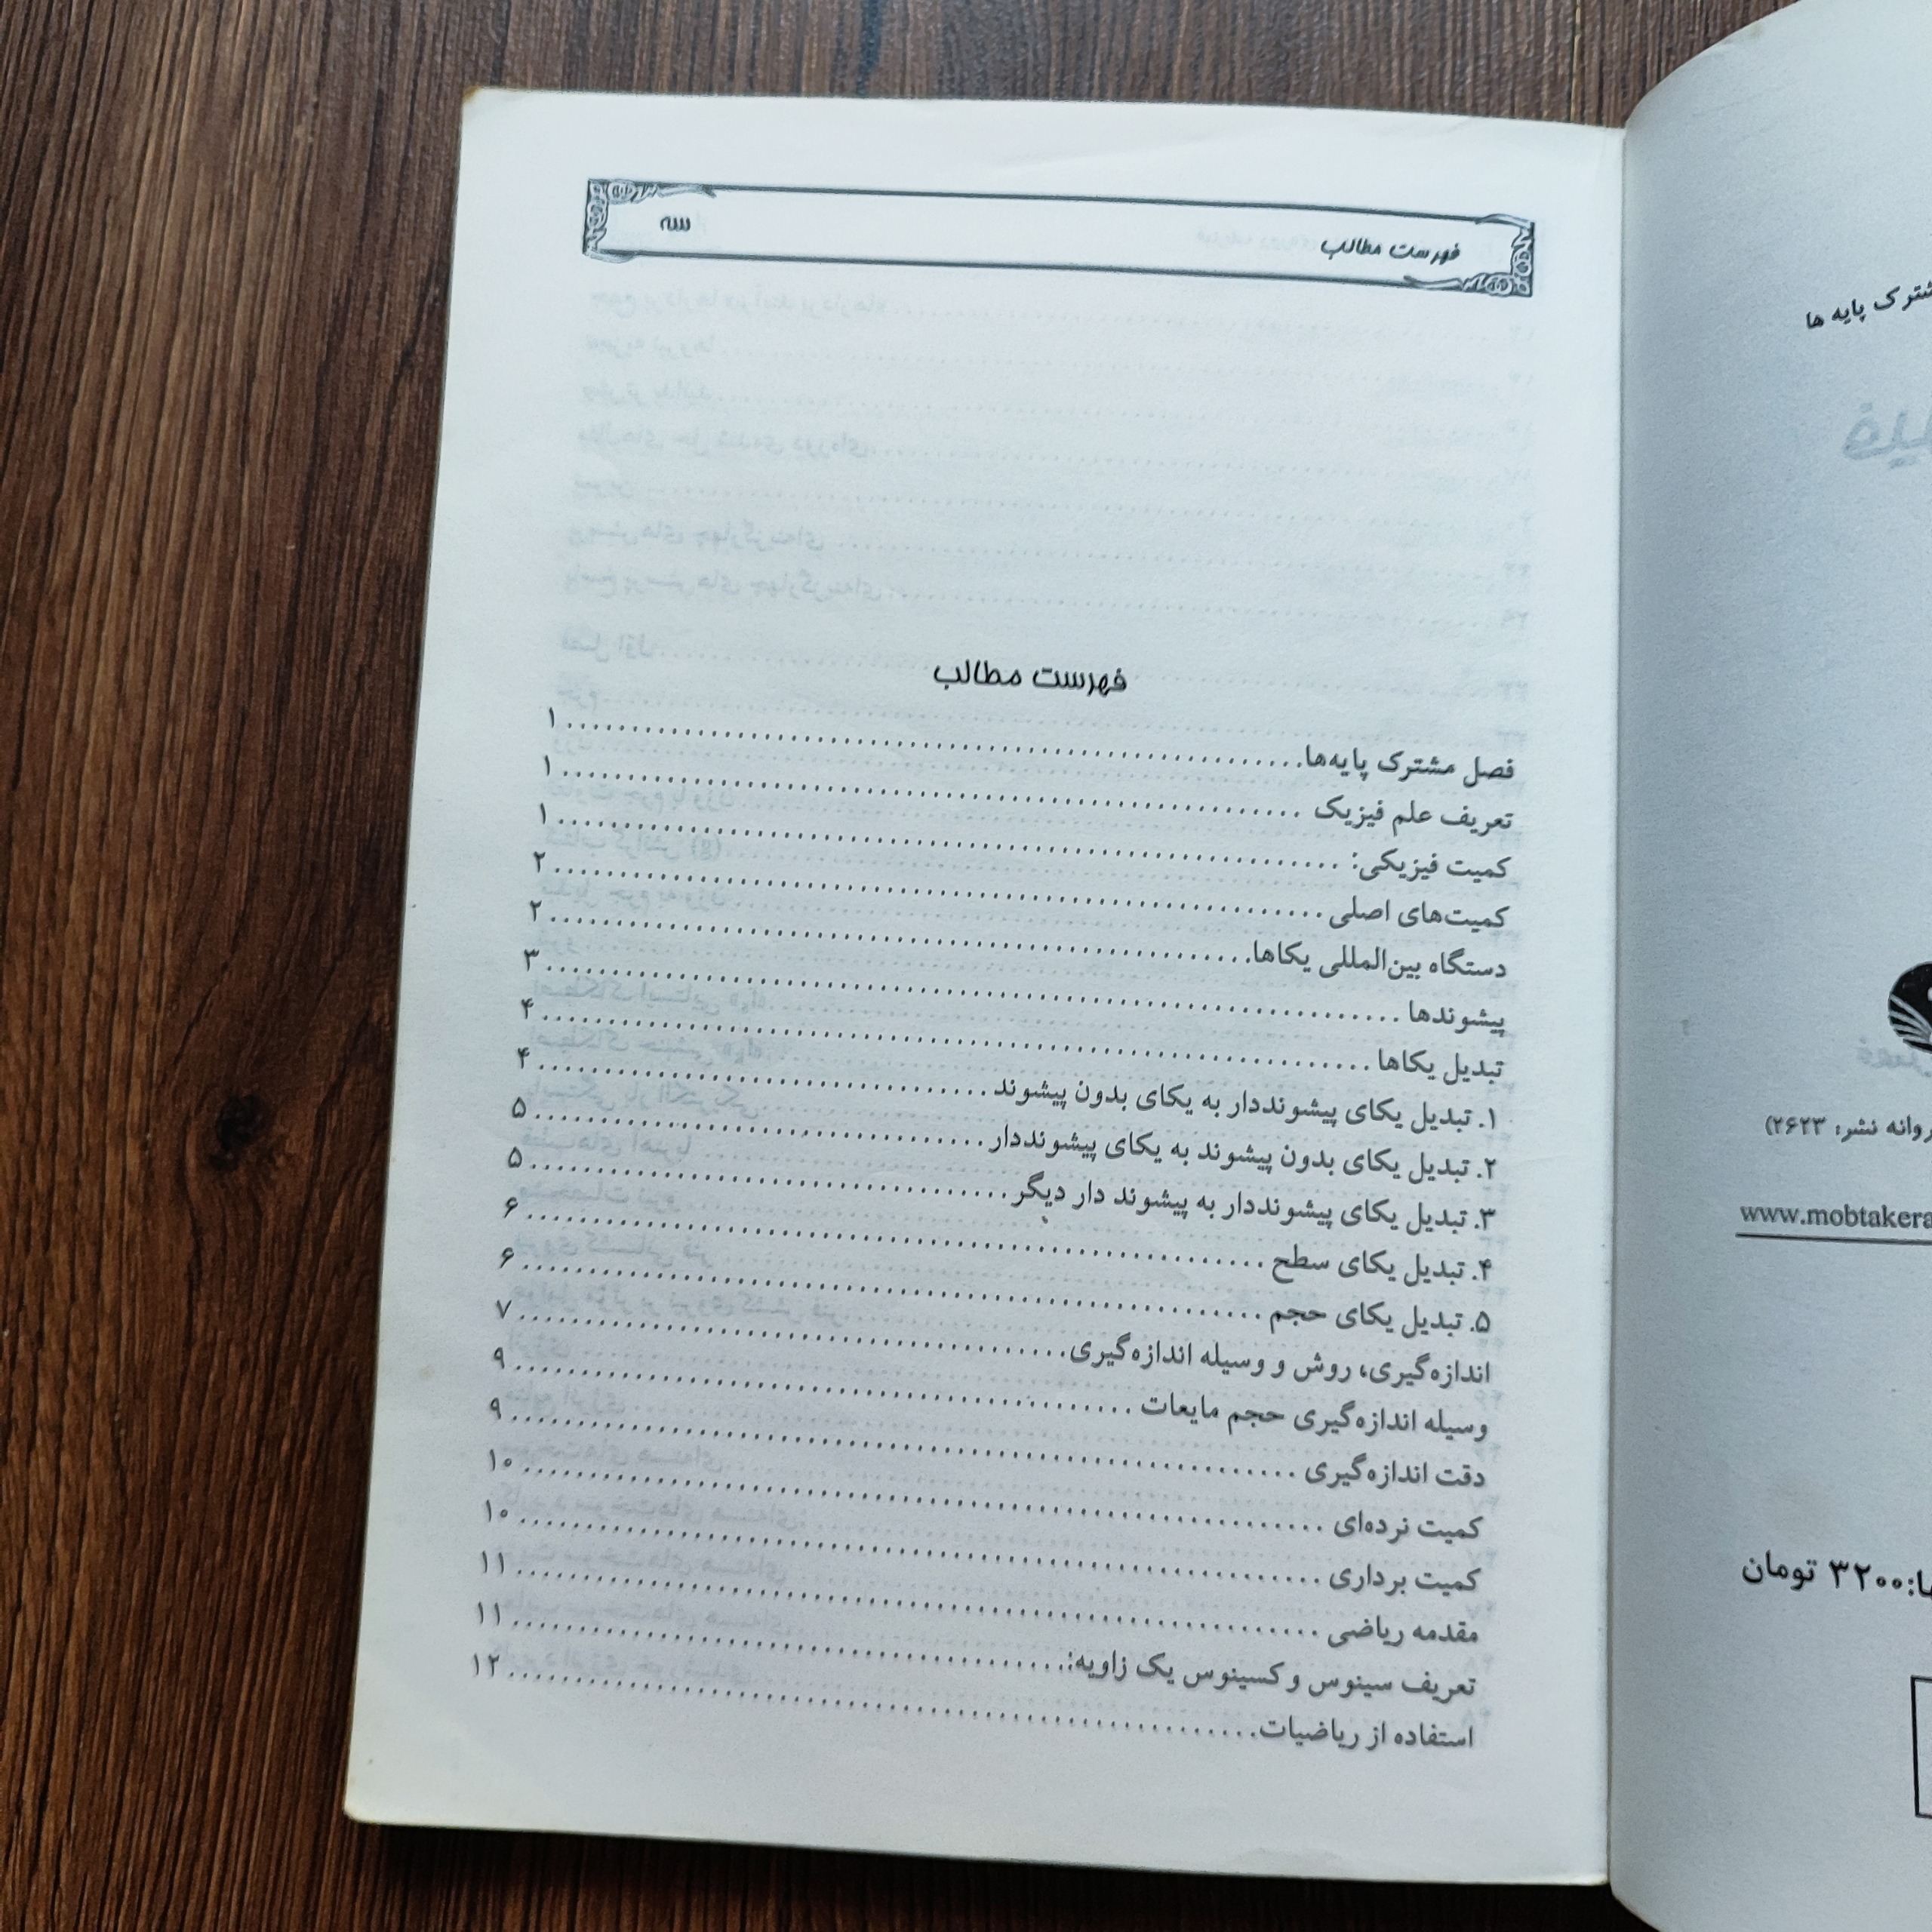 فهرست مطالب سه
فهرست مطالب
فصل مشترک پایه‌ها ۱
تعریف علم فیزیک ۱
کمیت فیزیکی: ۱
کمیت‌های اصلی ۲
دستگاه بین‌المللی یکاها ۲
پیشوندها ۳
تبدیل یکاها ۴
۱. تبدیل یکای پیشونددار به یکای بدون پیشوند ۴
۲. تبدیل یکای بدون پیشوند به یکای پیشونددار ۵
۳. تبدیل یکای پیشونددار به پیشوند دار دیگر ۵
۴. تبدیل یکای سطح ۶
۵. تبدیل یکای حجم ۶
اندازه‌گیری، روش و وسیله اندازه‌گیری ۷
وسیله اندازه‌گیری حجم مایعات ۹
دقت اندازه‌گیری ۹
کمیت نرده‌ای ۱۰
کمیت برداری ۱۰
مقدمه ریاضی ۱۱
تعریف سینوس و کسینوس یک زاویه: ۱۱
استفاده از ریاضیات ۱۲
پایه ها
نشر: ۲۶۲۳)
www.mobtakera
۳۲۰۰ تومان